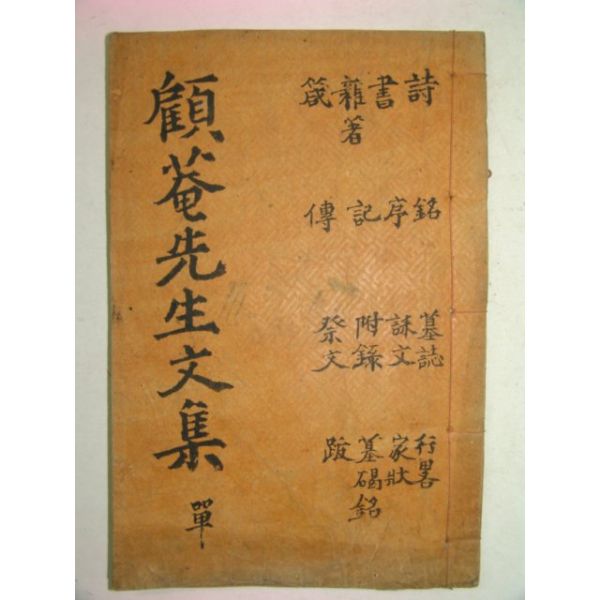 顧菴先生文集 單
詩 書 雜著 箴
銘 序 記 傳
墓誌 誄文 附錄 祭文
行畧 家狀 墓碣銘 跋